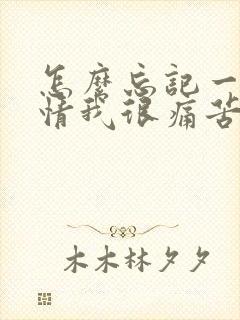 怎麽忘記一
情我很痛苦
木木林夕夕